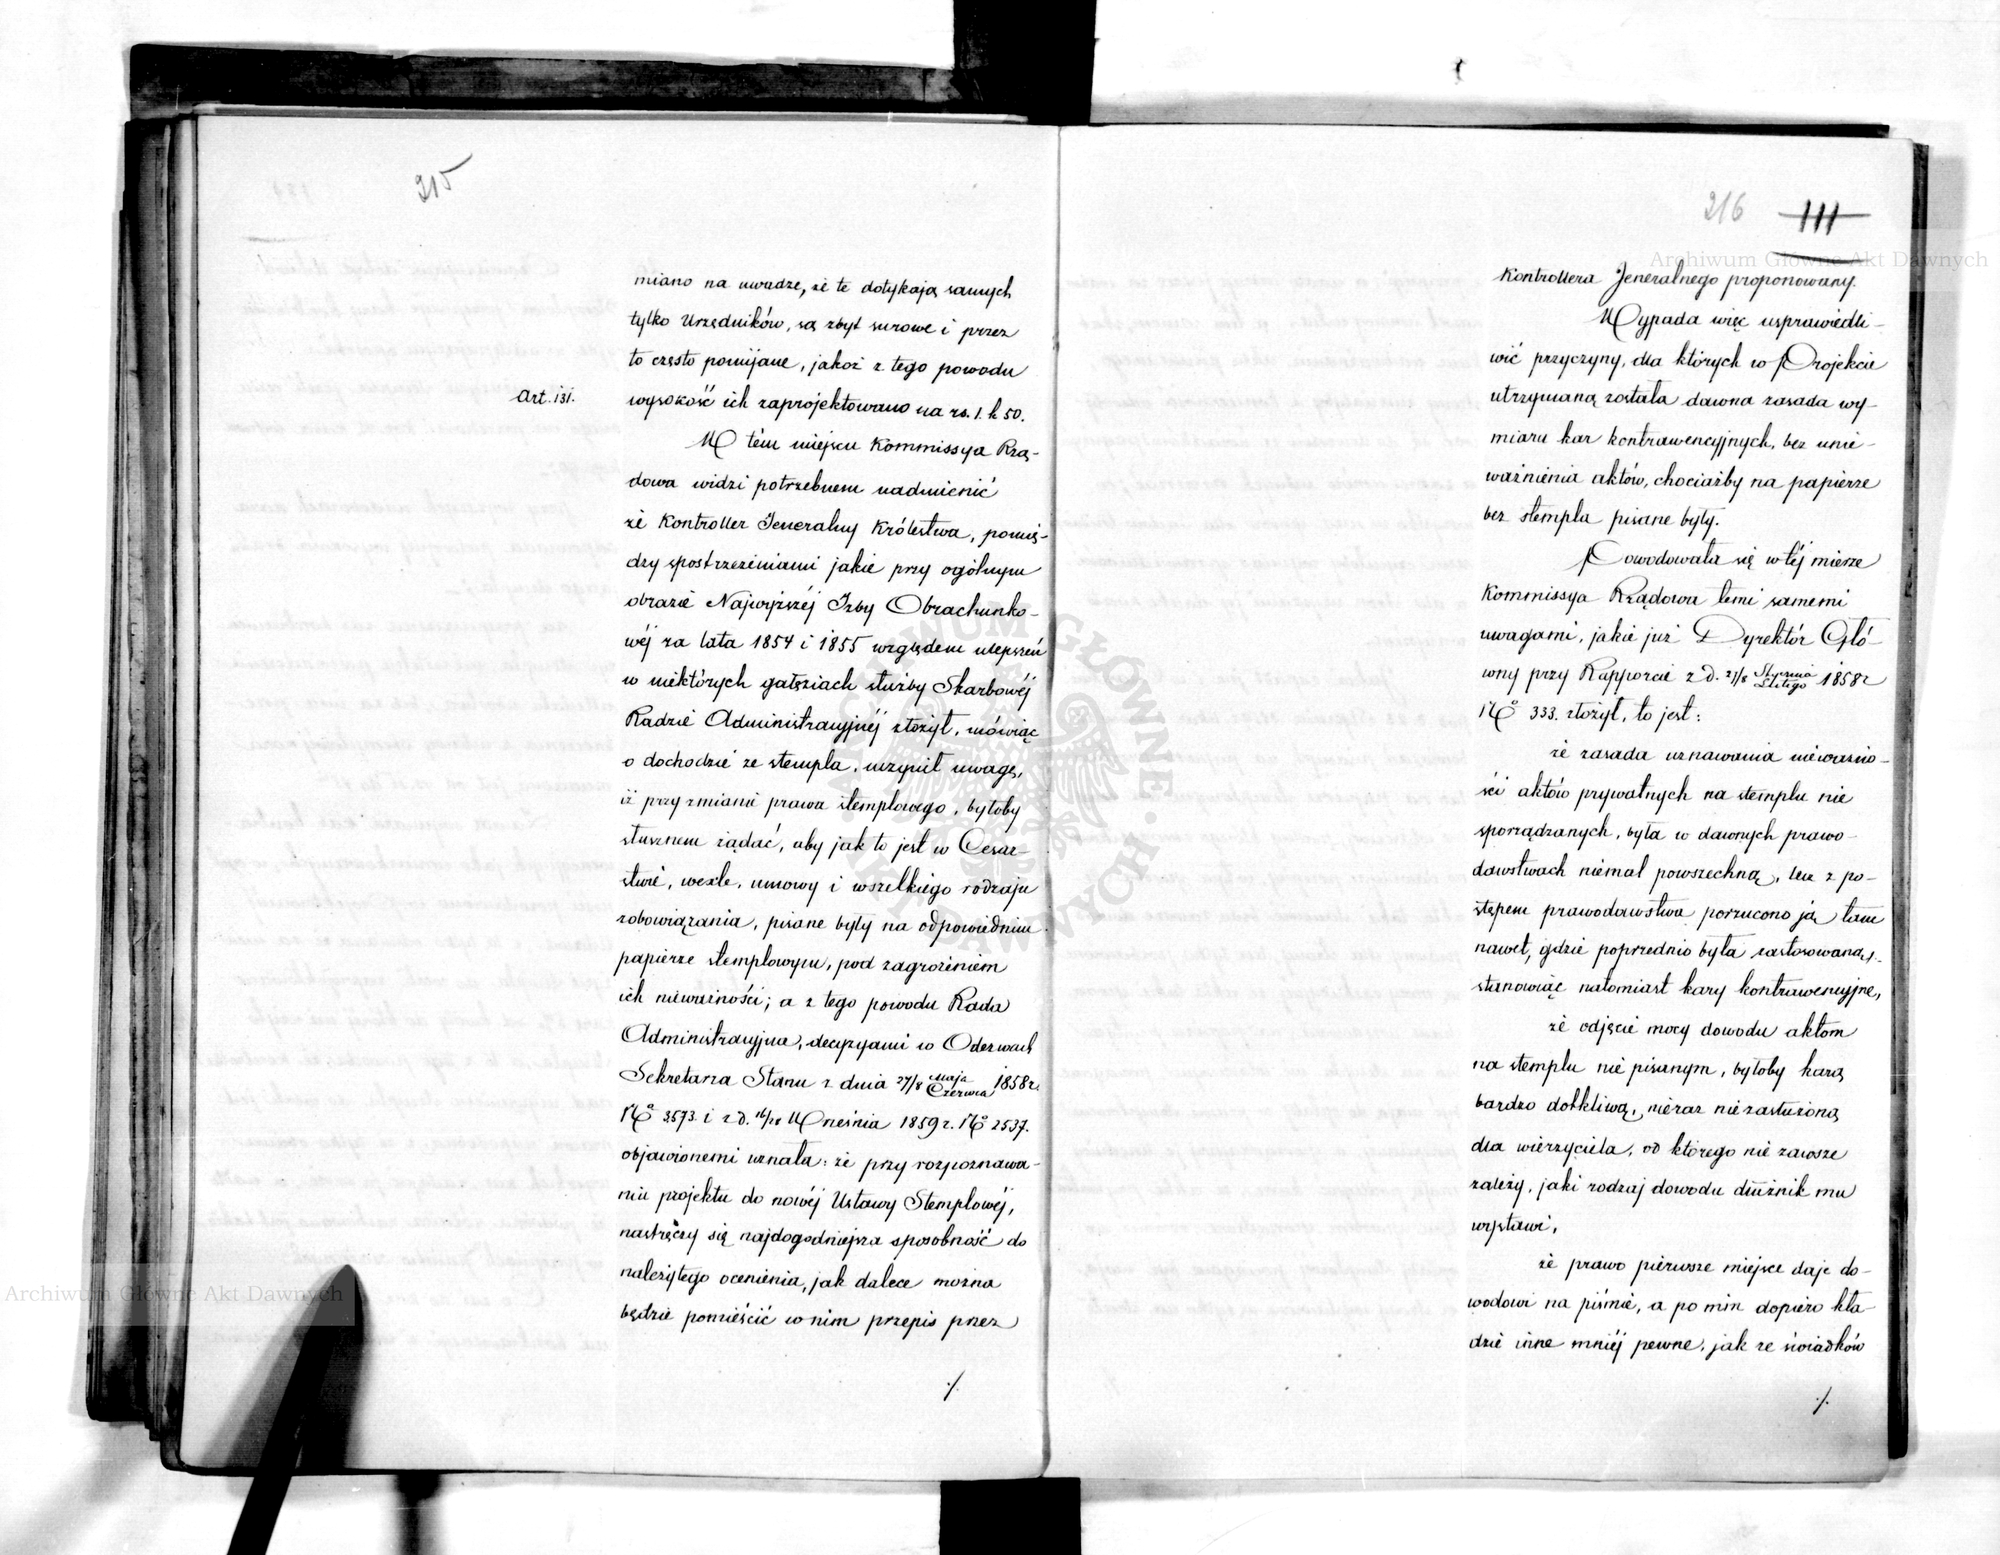 215
miano na uwadze, że te dotykają samych
tylko Urzędników, są zbyt surowe i przez
to często pomijane, jakoż z tego powodu
Art. 131.
wysokość ich zaprojektowano na rs. 1. k 50.
W tém miejscu Kommissya Rzą-
dowa widzi potrzebnem nadmienić
że Kontroller Jeneralny Królestwa, pomię-
dzy spostrzeżeniami jakie przy ogólnym
obrazie Najwyższéj Izby Obrachunko-
wéj za lata 1854 i 1855 względem ulepszeń
w niektórych gałęziach służby Skarbowéj
Radzie Administracyjnéj złożył, mówiąc
o dochodzie ze stempla, uczynił uwagę,
iż przy zmianie prawa stemplowego, byłoby
słusznem żądać, aby jak to jest w Cesar-
stwie, wexle, umowy i wszelkiego rodzaju
zobowiązania, pisane były na odpowiednim
papierze stemplowym, pod zagrożeniem
ich nieważności; a z tego powodu Rada
Administracyjna, decyzyami w Odezwach
Sekretarza Stanu z dnia 27/8 Maja Czerwca 1858 r.
No 3573. i z d. 16/28 Września 1859 r. No 2537.
objawionemi uznała: że przy rozpoznawa-
niu projektu do nowéj Ustawy Stemplowéj,
nastręczy się najdogodniejsza sposobność do
należytego ocenienia, jak dalece można
będzie pomieścić w nim przepis przez
./.
216 111
Kontrollera Jeneralnego proponowany.
Wypada więc usprawiedli-
wić przyczyny, dla których w Projekcie
utrzymaną została dawna zasada wy-
miaru kar kontrawencyjnych, bez unie-
ważnienia aktów, chociażby na papierze
bez stempla pisane były.
Powodowała się w téj mierze
Kommissya Rządowa temi samemi
uwagami, jakie już Dyrektór Głó-
wny przy Rapporcie z d. 27/8 Stycznia Lutego 1858 r
No 333. złożył, to jest:
że zasada uznawania nieważno-
ści aktów prywatnych na stemplu nie
sporządzanych, była w dawnych prawo-
dawstwach niemal powszechną, lecz z po-
stępem prawodawstwa porzucono ją tam
nawet, gdzie poprzednio była zastosowaną,
stanowiąc natomiast kary kontrawencyjne,
że odjęcie mocy dowodu aktom
na stemplu nie pisanym, byłoby karą
bardzo dotkliwą, nieraz nie zasłużoną
dla wierzyciela, od którego nie zawsze
zależy, jaki rodzaj dowodu dłużnik mu
wystawi,
że prawo pierwsze miejsce daje do-
wodowi na piśmie, a po nim dopiero kła-
dzie inne mniéj pewne, jak ze świadków
./.
Archiwum Główne Akt Dawnych
Archiwum Główne Akt Dawnych
ARCHIWUM GŁÓWNE AKT DAWNYCH